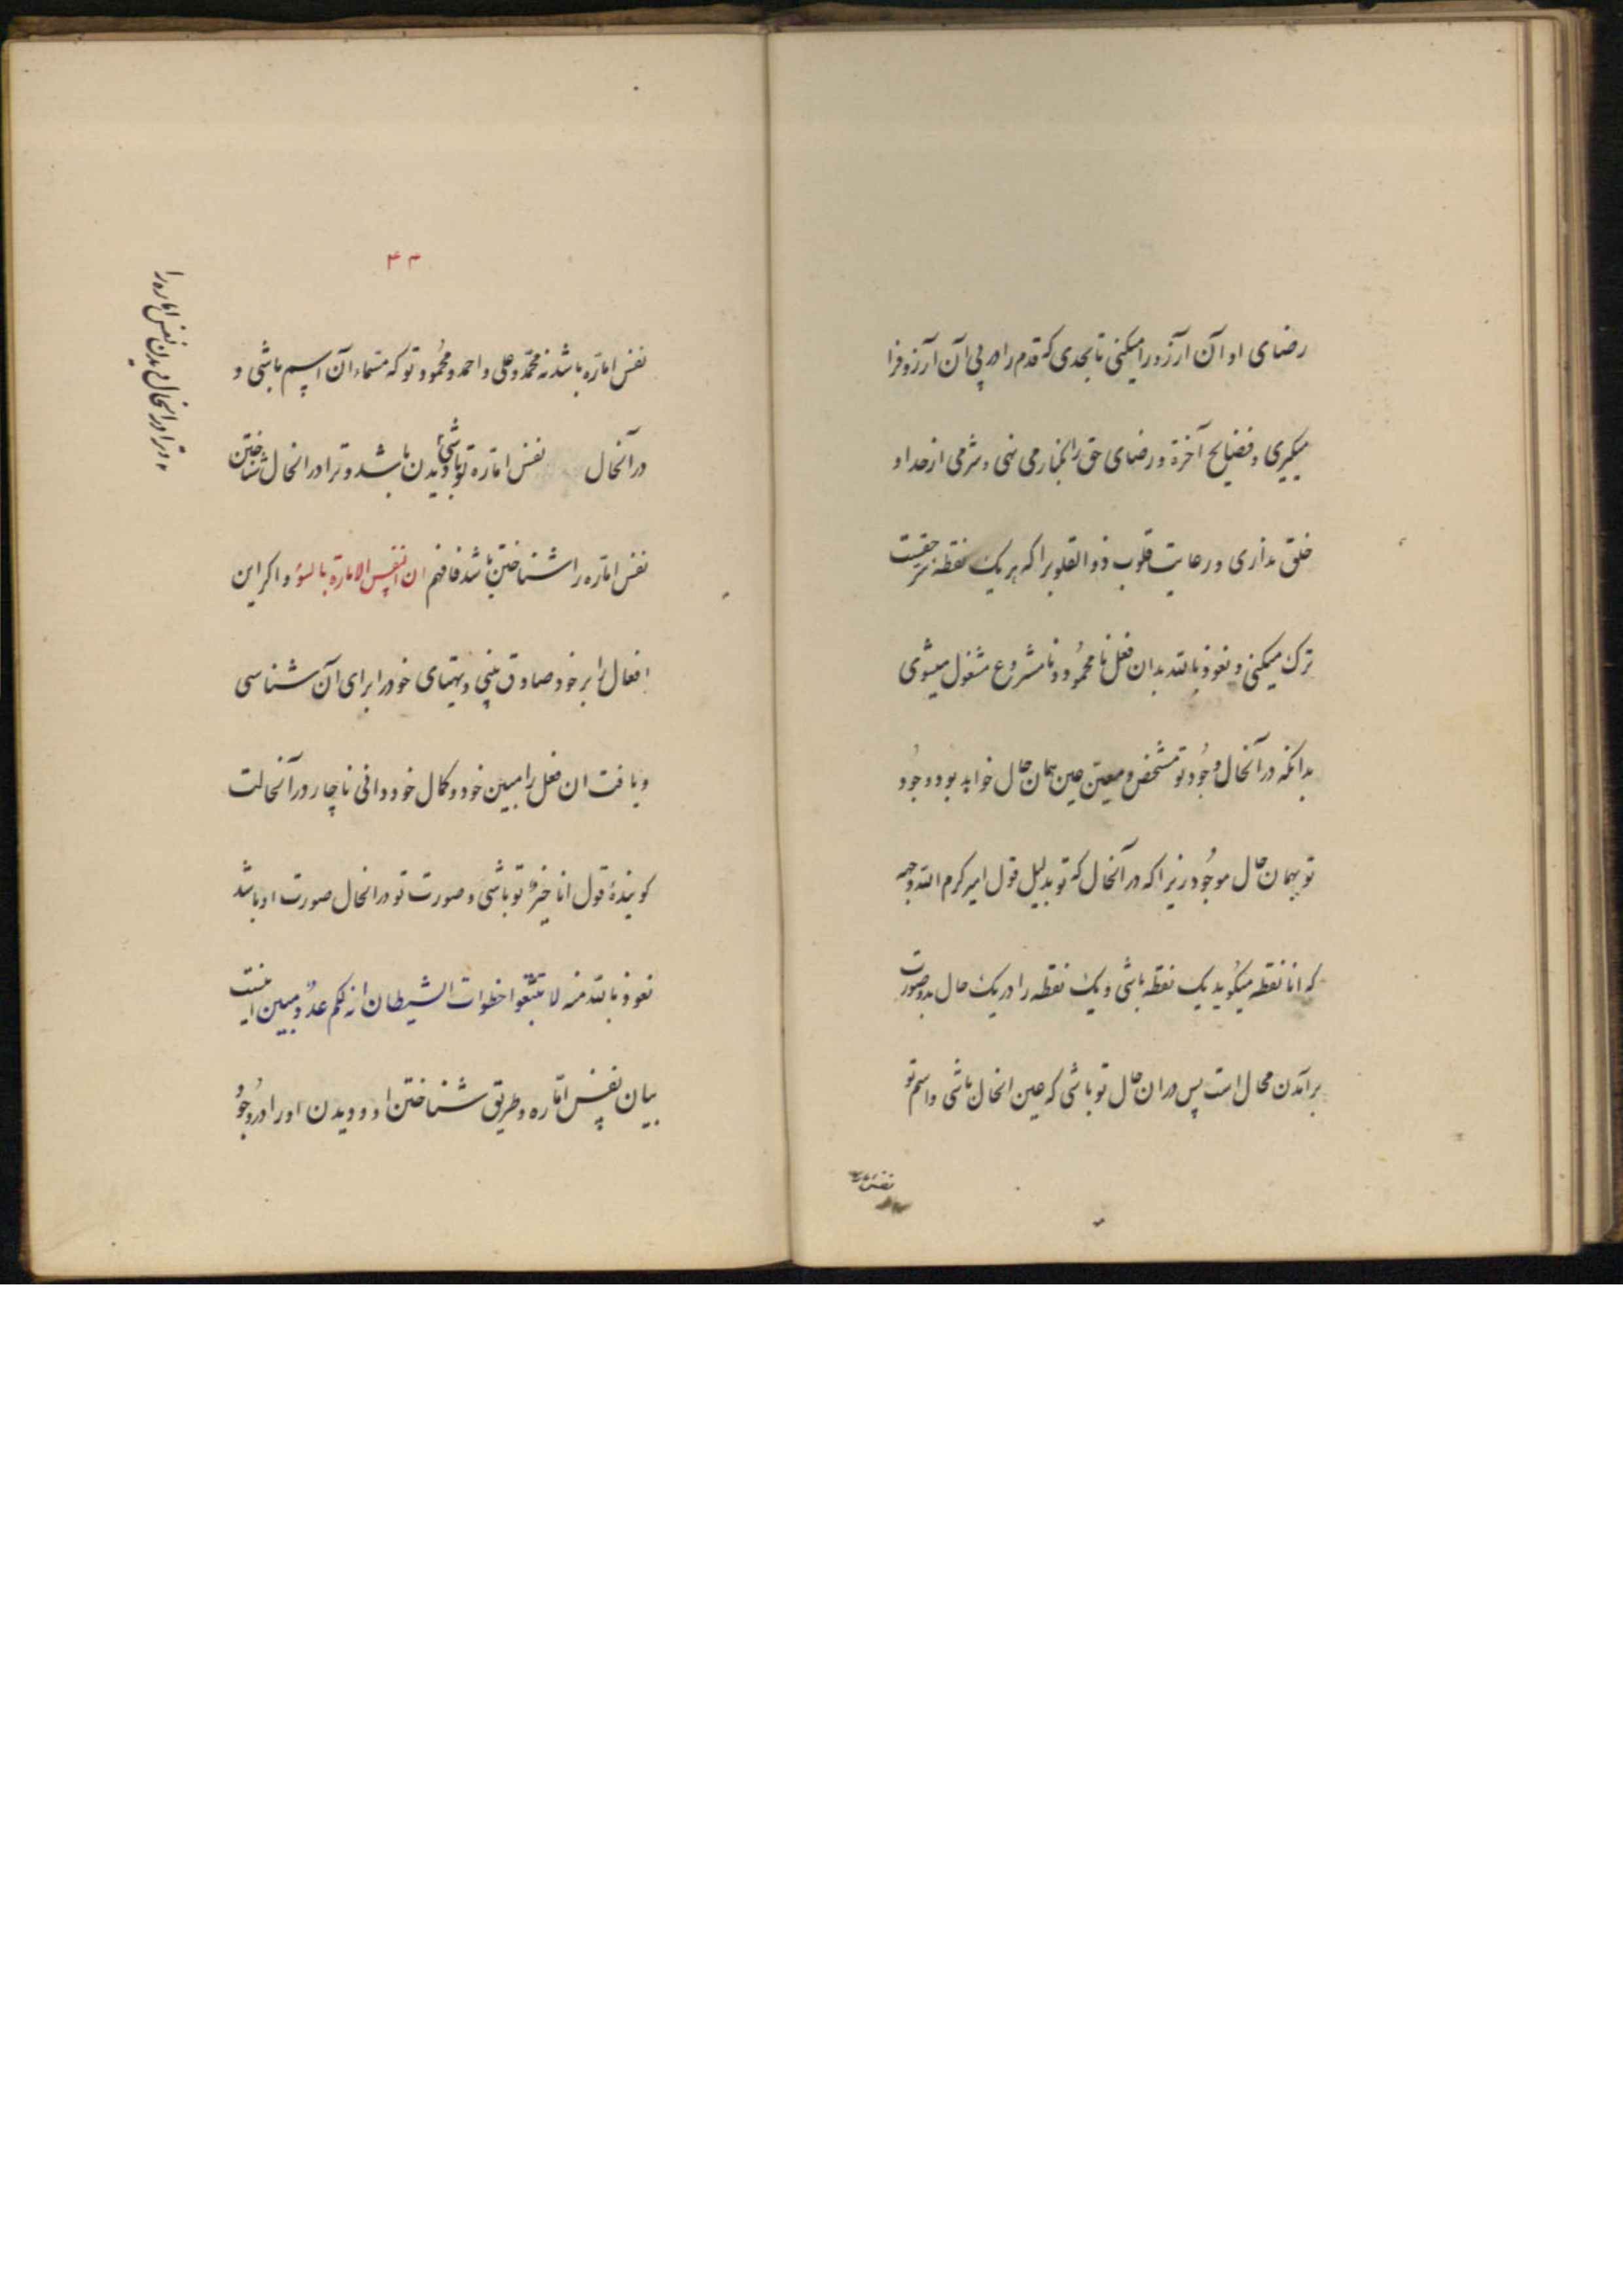 رضای او آن آرزو را میکنی تا بحدی که قدم را در پی آن آرزو فرا
میگیری و فضایح آخرة و رضای حق را کنار می نهی و شرمی از خدا و
خلق نداری و رعایت قلوب ذو القلوبرا که هر یک نقطهٔ حقیقت
ترک میکنی و نعوذ بالله بدان فعل نا محمود و نا مشروع مشغول میشوی
بدانکه در آنحال وجود تو مشخص و معین عین همان حال خواهد بود و وجود
تو بهمان حال موجود زیرا که در آنحال که تو بدلیل قول امیر کرم الله وجهه
که انا نقطه میگوید یک نقطه باشی و یک نقطه را در یک حال بدو صورت
بر آمدن محال است پس در ان حال تو باشی که عین انحال باشی و اسم تو
نفس اماره
۴۴
نفس اماره باشد نه محمد و علی و احمد و محمود و تو که مسماء آن اسم باشی و
در آنحال نفس اماره تو باشی و دیدن باشد و ترا در انحال شناختن
نفس اماره را شناختن باشد فافهم ان النفس الامارة بالسوء و اکر این
افعال را بر خود صادق بینی و همتای خود را برای آن شناسی
و یافت ان فعل را مبین خود و کمال خود دانی ناچار در آنحالت
کویندهٔ قول انا خیر تو باشی و صورت تو در انحال صورت او باشد
نعوذ بالله منه لا تتبعوا خطوات الشیطان انه لکم عدو مبین اینست
بیان نفس اماره و طریق شناختن او و دیدن او را در وجود
و ترا در انحال دیدن نفس اماره را